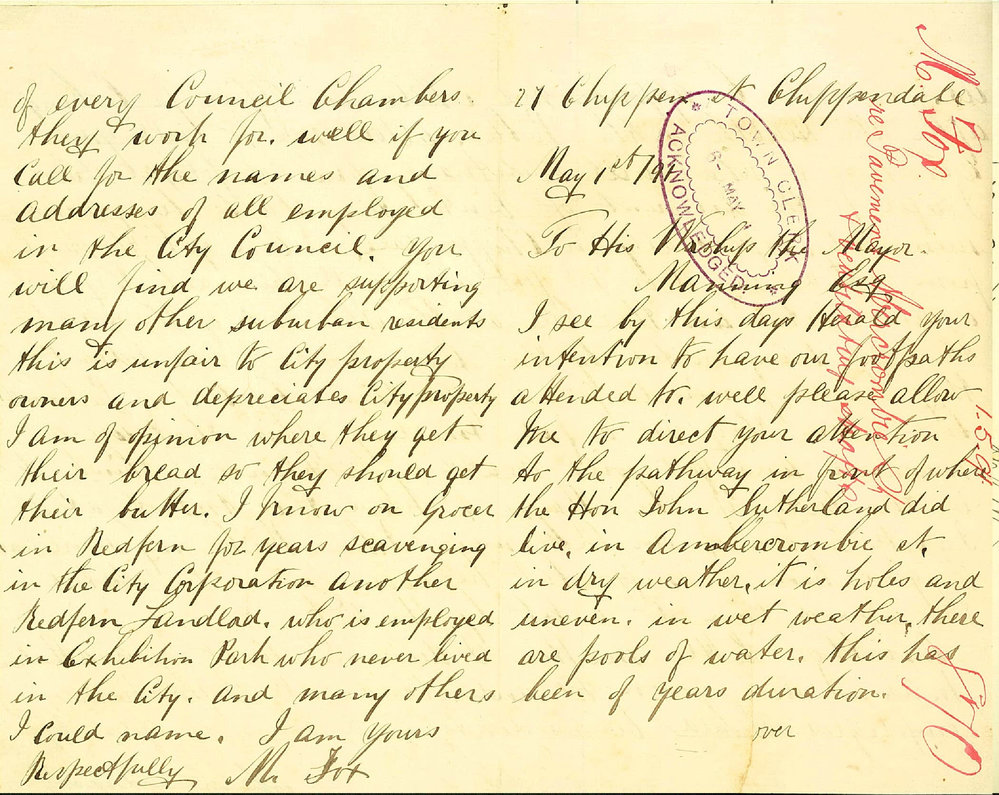 27 Chippen st Chippendale
May 1st
To His Worship the Mayor.
Manning Esq
I see by this days Herald your
intention to have our footpaths
attended to. well please allow
me to direct your attention
to the pathway in front of where
the Hon John Sutherland did
live. in Ambercrombie st.
in dry weather, it is holes and
uneven. in wet weather, there
are pools of water. this has
been of years duration.
over
of every Council Chambers
they work for. well if you
Call for the names and
addresses of all employed
in the City Council. you
will find we are supporting
many other suburban residents
this is unfair to City property
owners and depreciates City property
I am of opinion where they get
their bread so they should get
their butter. I know on Grocer
in Redfern for years scavenging
in the City Corporation another
Redfern Landlad. who is employed
in Exhibition Park who never lived
in the City. and many others
I could name. I am yours
Respectfully M. Fox
TOWN CLERK
8 - MAY
ACKNOWLEDGED
M Fox
re Pavement Abercrombie St
1.5.